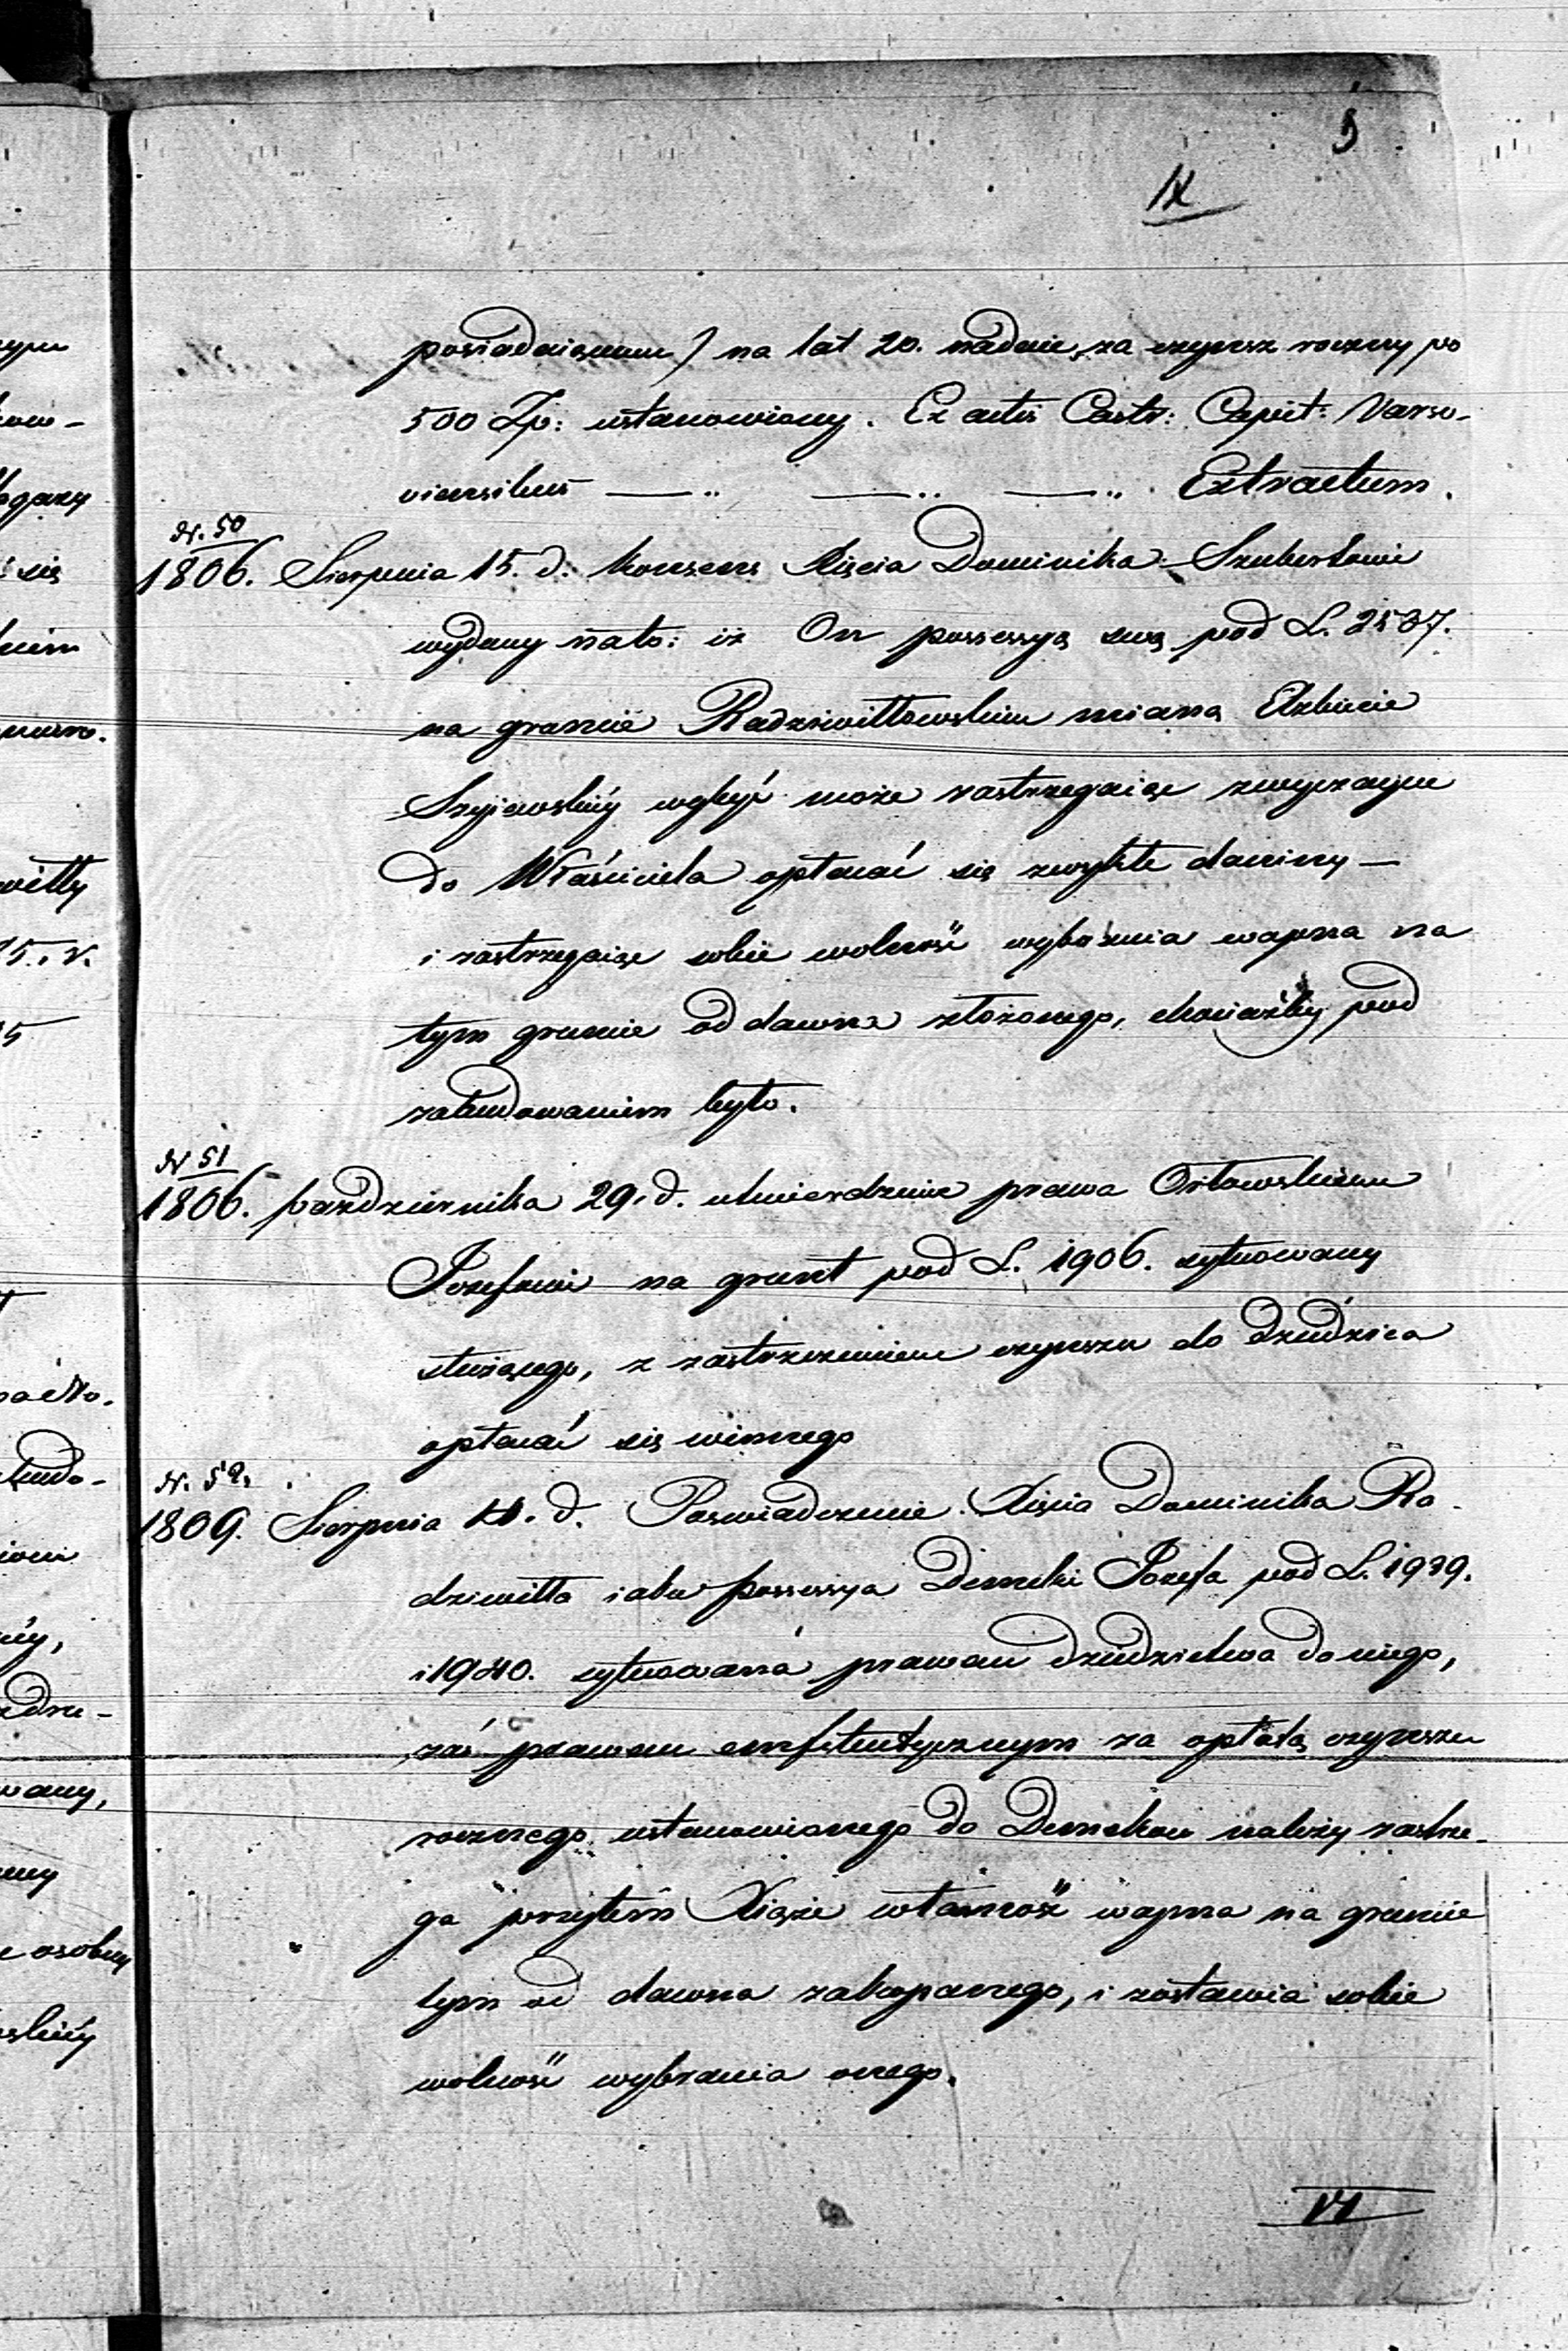 5
IX
posiadaiącemu) na lat 20. nadaie, za czynsz roczny po
500 Zp: ustanowiony. Ex actis Castr: Capit: Varso-
viensibus —„ —„ —„ Extractum.
N. 50
1806. Sierpnia 15. d. Konsens Xięcia Dominika Szubertowi
wydany nato: iż On possessyą swą pod L. 2537.
na gruncie Radziwiłłowskim mianą Elzbiecie
Szyiewskiéy zbyć może zastrzegaiąc zwyczayne
do Właściciela opłacać się zwykłe daniny —
i zastrzegaiąc sobie wolność wybrania wapna na
tym gruncie od dawna złożonego, chociażby pod
zabudowaniem było.
N 51
1806. pazdziernika 29. d. utwierdzenie prawa Orłowskiemu
Jozefowi na grunt pod L. 1906. sytuowany
służącego, z zastrzeżeniem czynszu do dziedzica
opłacać się winnego
N. 52.
1809. Sierpnia d. Poswiadczenie Xięcia Dominika Ra-
dziwiłła iako possessya Demelki Jozefa pod L. 1939.
i 1940. sytuowana prawem dziedzictwa do niego,
zaś prawem emfiteutycznym za opłatą czynszu
rocznego ustanowionego do należy zastrze-
ga przytém Xiąże własność wapna na gruncie
tym od dawna zakopanego, i zostawia sobie
wolność wybrania onego.
VI